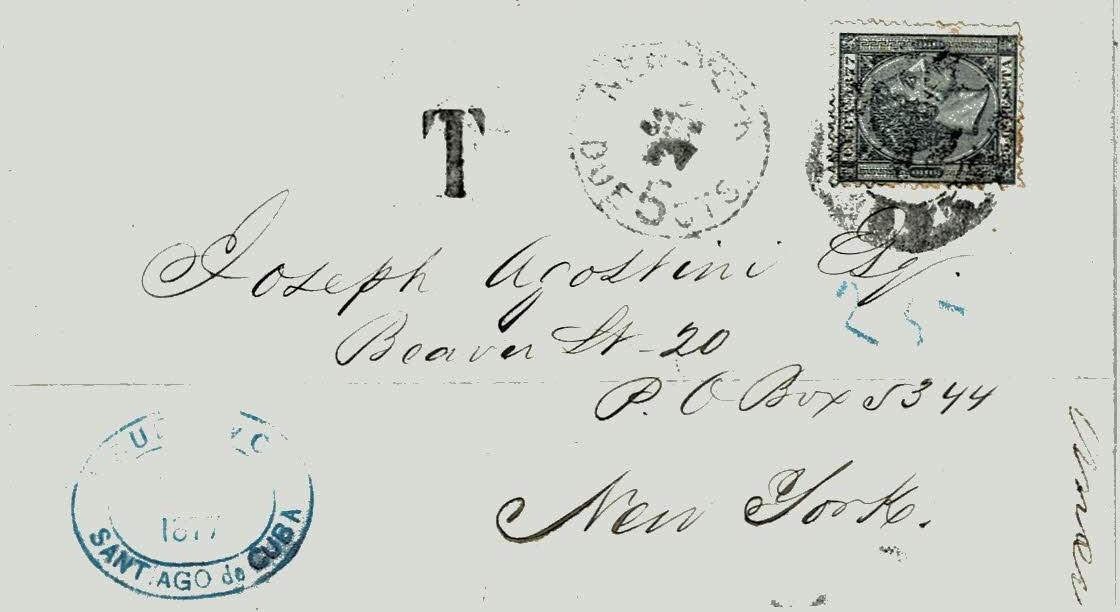 T
NEW YORK
DUE 5 CTS
CUBA 1877
25 C PESETA
Joseph Agostini Esq.
25
Beaver St - 20
P. O Box 5344
New York.
1877
SANTIAGO de CUBA